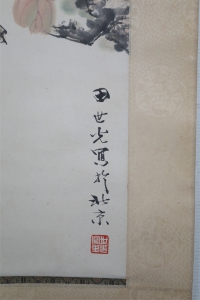 田世光寫於北京